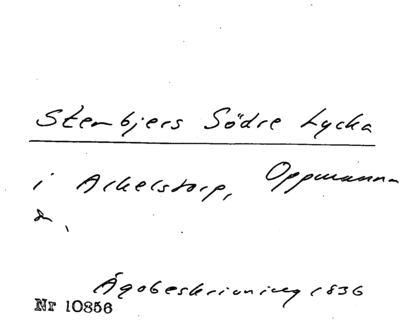 Stenbjers Södre Lycka
i Arkelstorp, Oppmanna
sn.
Ägobeskrivning 1836
Nr 10856